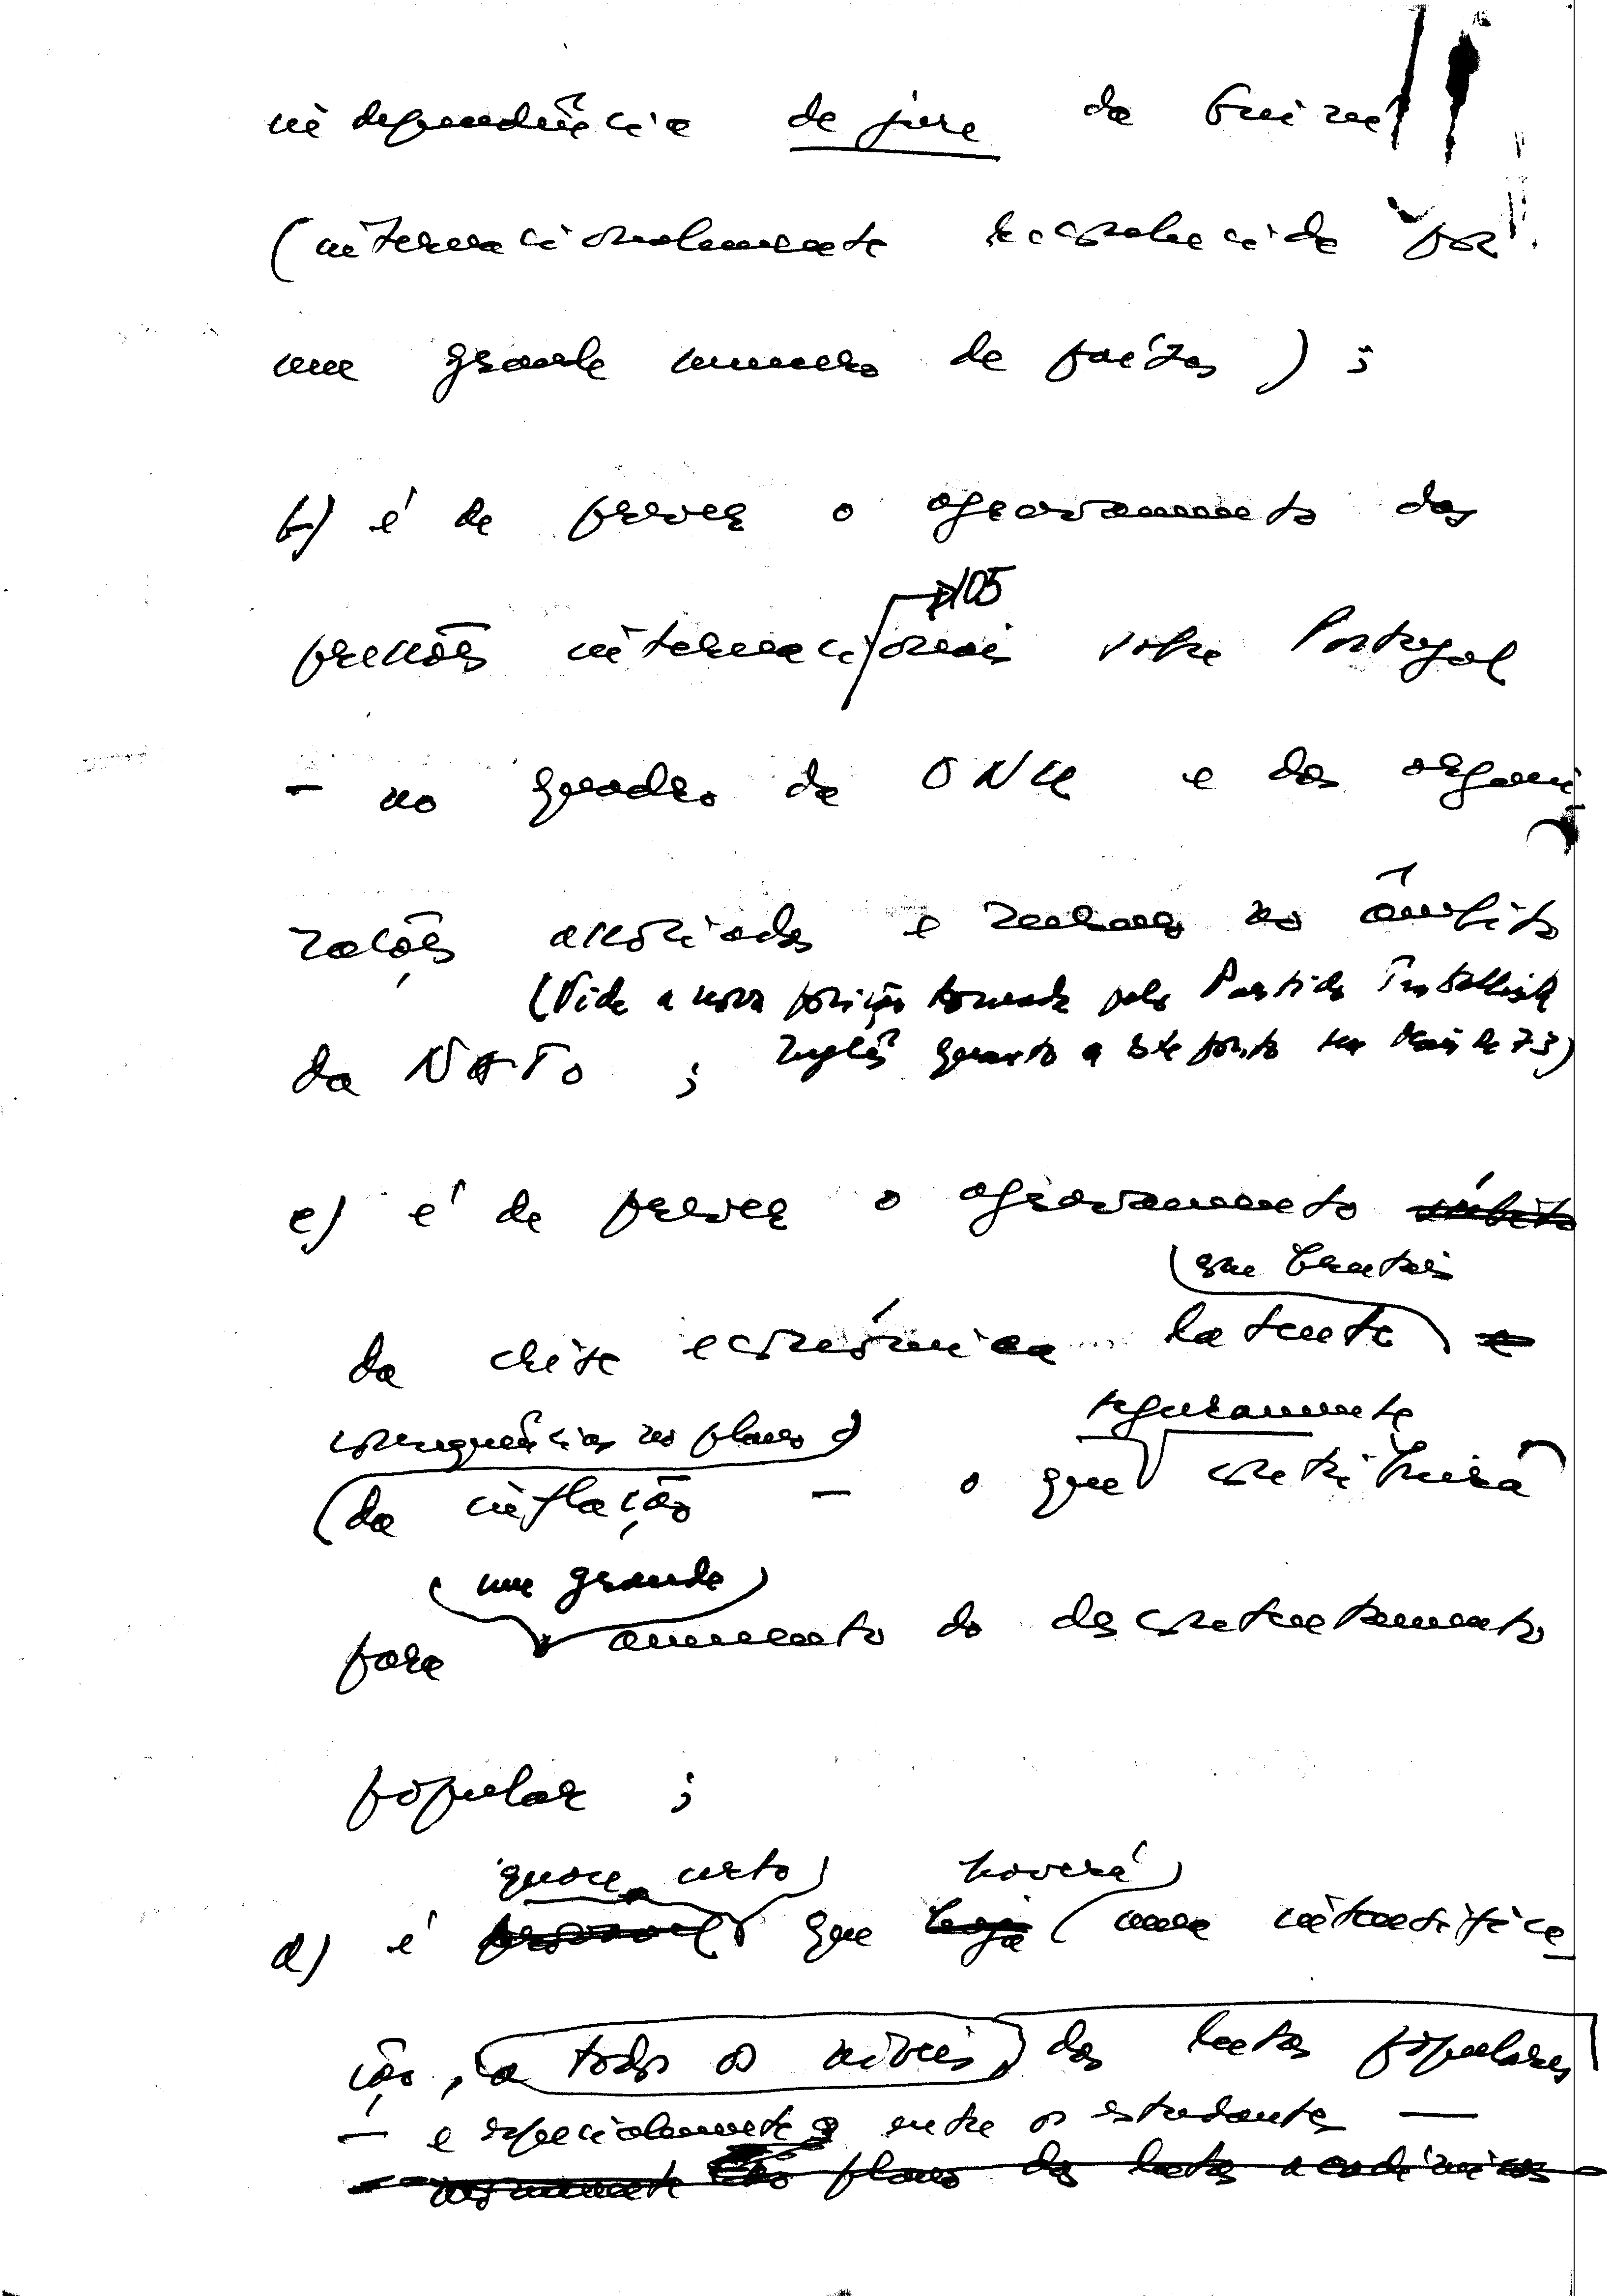 independência de jure da Guiné
(internacionalmente reconhecida por
um grande numero de países);
b) é de prever o agravamento das
→105
pressões internacionais sobre Portugal
- no quadro da ONU e das organi
zações associadas e no âmbito
(Vide a nova posição tomada pelo Partido Trabalhista
da NATO; Inglês quanto a este ponto em Maio de 73)
c) é de prever o agravamento súbito
da crise económica latente e
consequências no plano
(da inflação - o que seguramente contribuirá
um grande
para aumento do descontentamento
popular;
quase certo haverá
d) é provavel que haja uma intensifica
ção, a todos os níveis, das lutas populares
- e especialmente entre os estudantes -
no plano das lutas académicas